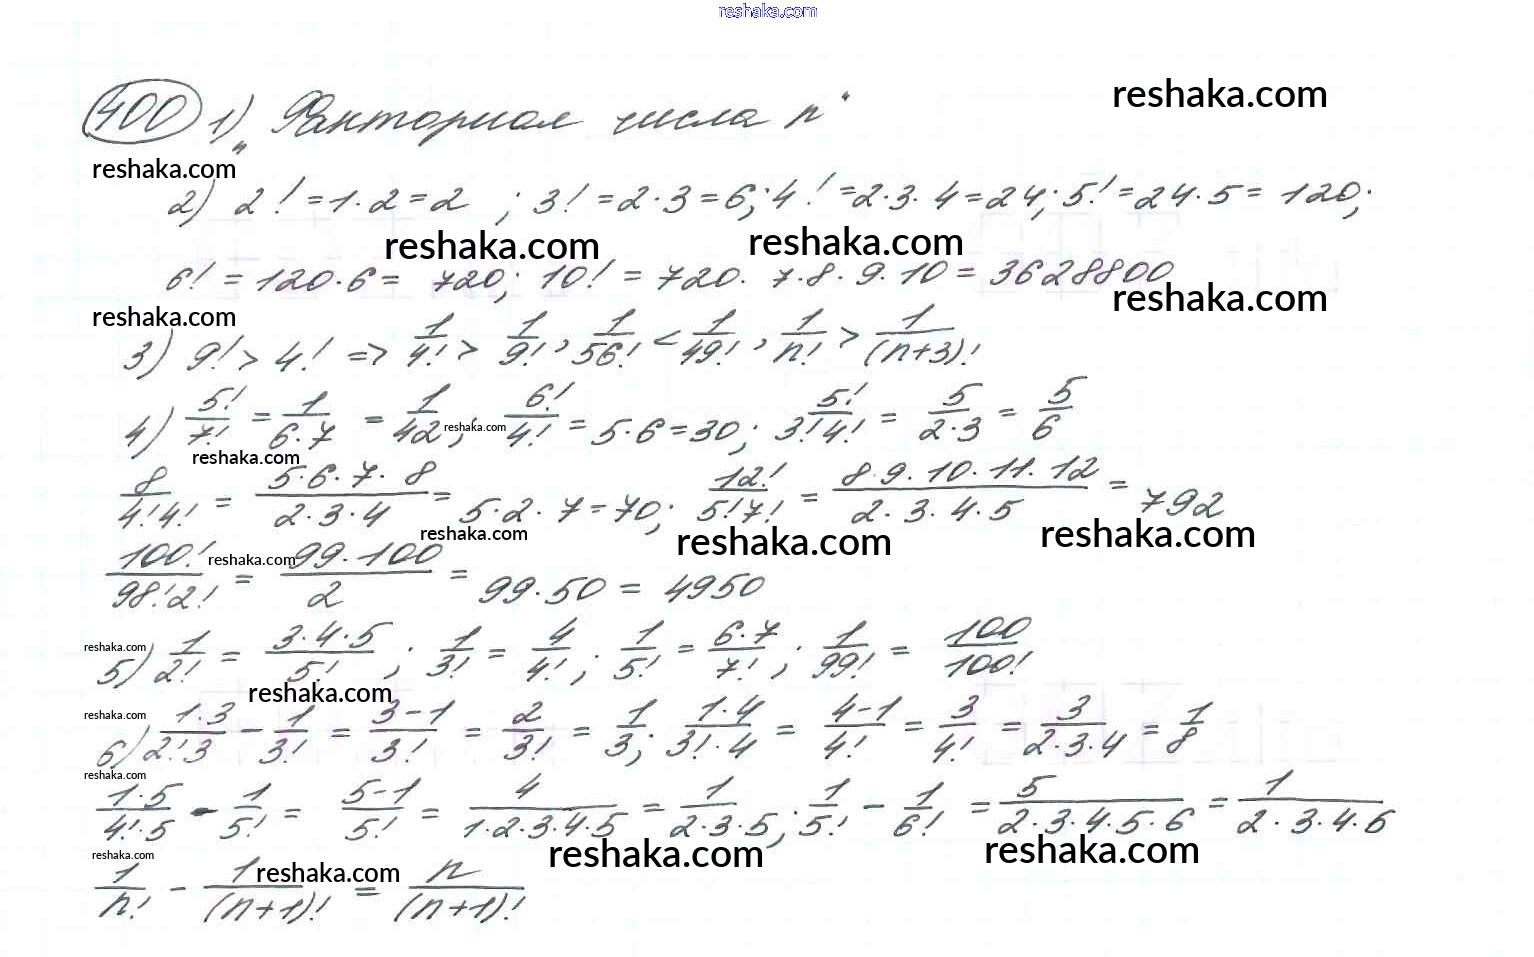 reshaka.com
400 1) „Факториал числа n“
reshaka.com
reshaka.com
2) 2! = 1·2 = 2 ; 3! = 2·3 = 6; 4! = 2·3·4 = 24; 5! = 24·5 = 120;
reshaka.com reshaka.com
6! = 120·6 = 720; 10! = 720·7·8·9·10 = 3628800
reshaka.com
reshaka.com
3) 9! > 4! => 1/4! > 1/9!, 1/56! < 1/49!, 1/n! > 1/(n+3)!
4) 5!/7! = 1/(6·7) = 1/42; 6!/4! = 5·6 = 30; 5!/(3!4!) = 5/(2·3) = 5/6
reshaka.com
reshaka.com
8/(4!4!) = (5·6·7·8)/(2·3·4) = 5·2·7 = 70; 12!/(5!7!) = (8·9·10·11·12)/(2·3·4·5) = 792
reshaka.com reshaka.com reshaka.com
100!/(98!2!) = (99·100)/2 = 99·50 = 4950
reshaka.com
reshaka.com
5) 1/2! = (3·4·5)/5! ; 1/3! = 4/4! ; 1/5! = (6·7)/7! ; 1/99! = 100/100!
reshaka.com
reshaka.com
6) (1·3)/(2!·3) - 1/3! = (3-1)/3! = 2/3! = 1/3; (1·4)/(3!·4) = (4-1)/4! = 3/4! = 3/(2·3·4) = 1/8
reshaka.com
(1·5)/(4!·5) - 1/5! = (5-1)/5! = 4/(1·2·3·4·5) = 1/(2·3·5); 1/5! - 1/6! = 5/(2·3·4·5·6) = 1/(2·3·4·6)
reshaka.com reshaka.com reshaka.com
1/n! - 1/(n+1)! = n/(n+1)!
reshaka.com